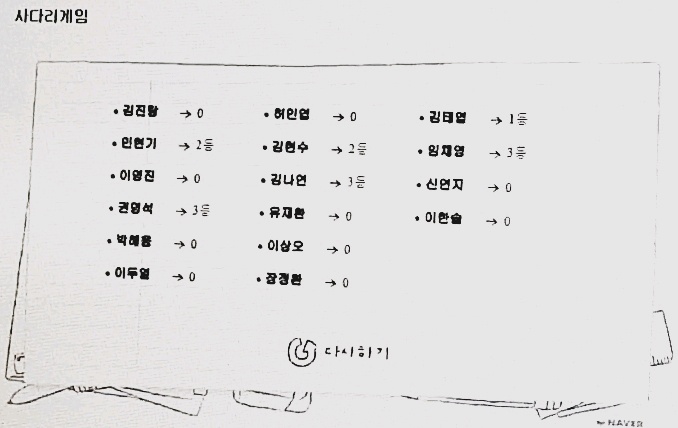 사다리게임
• 김진왕 → 0
• 허인엽 → 0
• 김태엽 → 1등
• 민현기 → 2등
• 김현수 → 2등
• 임채영 → 3등
• 이영진 → 0
• 김나연 → 3등
• 신연지 → 0
• 권영석 → 3등
• 유재환 → 0
• 이한솔 → 0
• 박혜윤 → 0
• 이상오 → 0
• 이두열 → 0
• 장경환 → 0
다시하기
NAVER